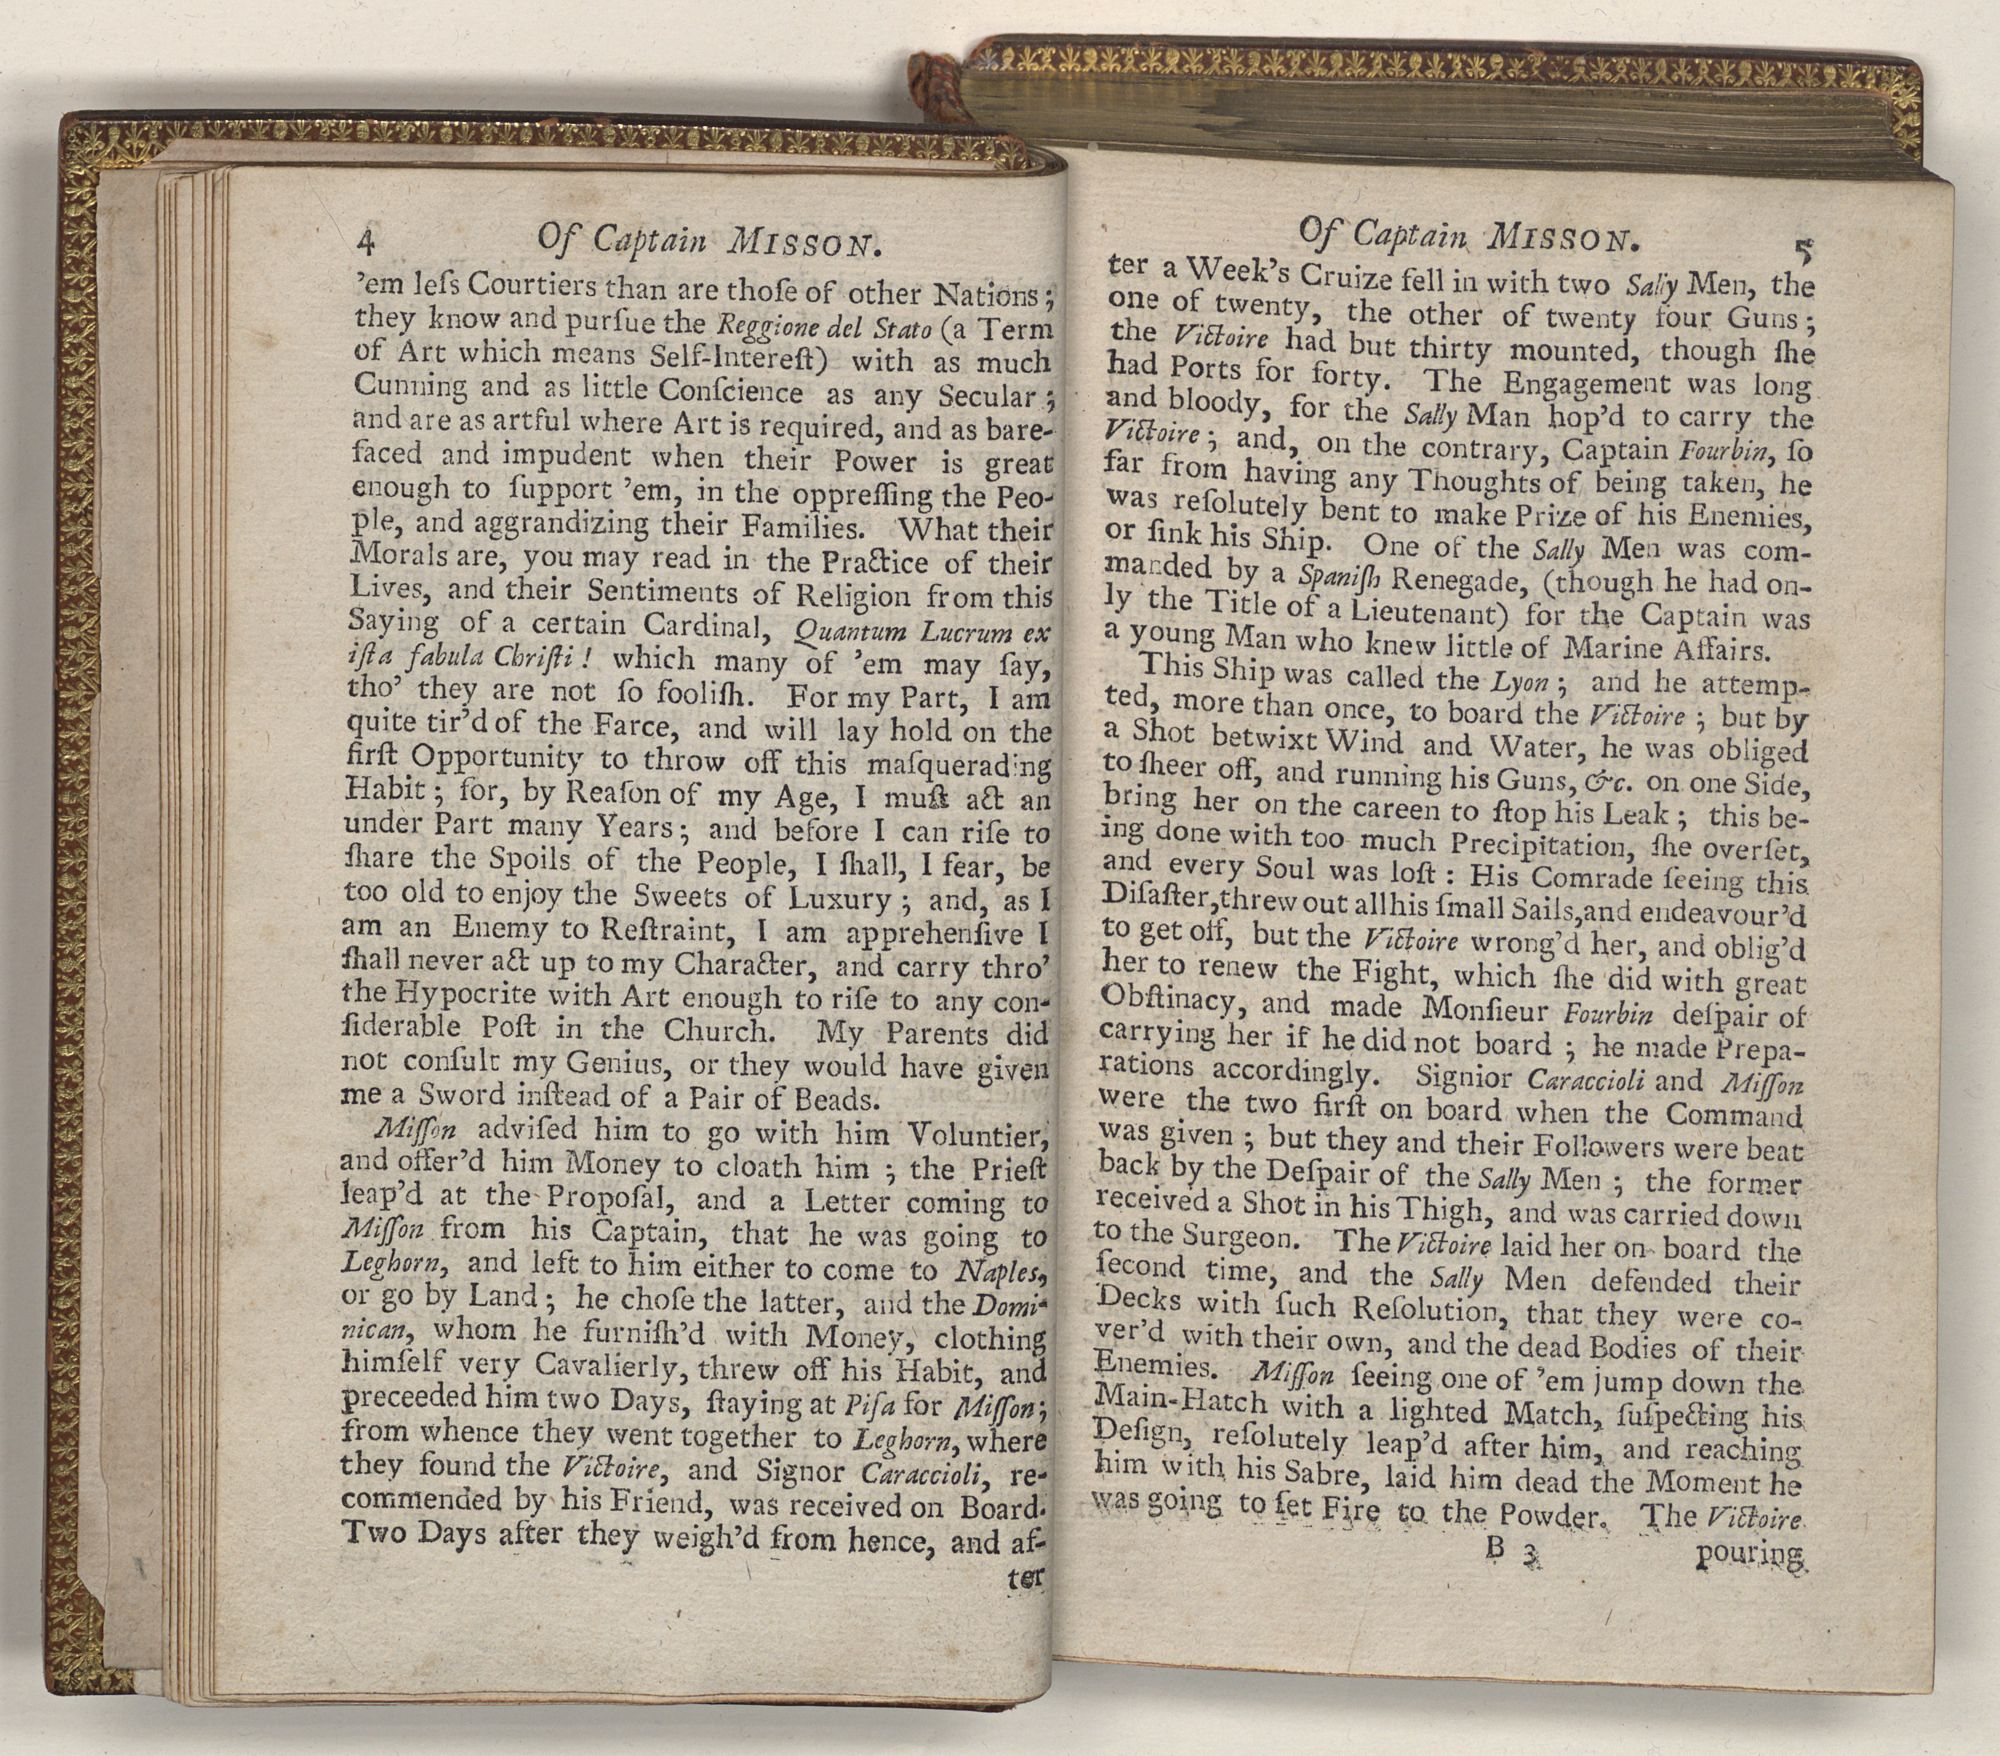 4 Of Captain MISSON.
'em leſs Courtiers than are thoſe of other Nations;
they know and purſue the Reggione del Stato (a Term
of Art which means Self-Intereſt) with as much
Cunning and as little Conſcience as any Secular;
and are as artful where Art is required, and as bare-
faced and impudent when their Power is great
enough to ſupport 'em, in the oppreſſing the Peo-
ple, and aggrandizing their Families. What their
Morals are, you may read in the Practice of their
Lives, and their Sentiments of Religion from this
Saying of a certain Cardinal, Quantum Lucrum ex
iſta fabula Chriſti! which many of 'em may ſay,
tho' they are not ſo fooliſh. For my Part, I am
quite tir'd of the Farce, and will lay hold on the
firſt Opportunity to throw off this maſquerading
Habit; for, by Reaſon of my Age, I muſt act an
under Part many Years; and before I can riſe to
ſhare the Spoils of the People, I ſhall, I fear, be
too old to enjoy the Sweets of Luxury; and, as I
am an Enemy to Reſtraint, I am apprehenſive I
ſhall never act up to my Character, and carry thro'
the Hypocrite with Art enough to riſe to any con-
ſiderable Poſt in the Church. My Parents did
not conſult my Genius, or they would have given
me a Sword inſtead of a Pair of Beads.
Miſſon adviſed him to go with him Voluntier,
and offer'd him Money to cloath him; the Prieſt
leap'd at the Propoſal, and a Letter coming to
Miſſon from his Captain, that he was going to
Leghorn, and left to him either to come to Naples,
or go by Land; he choſe the latter, and the Domi-
nican, whom he furniſh'd with Money, clothing
himſelf very Cavalierly, threw off his Habit, and
preceeded him two Days, ſtaying at Piſa for Miſſon;
from whence they went together to Leghorn, where
they found the Victoire, and Signor Caraccioli, re-
commended by his Friend, was received on Board.
Two Days after they weigh'd from hence, and af-
ter
Of Captain MISSON. 5
ter a Week's Cruize fell in with two Sally Men, the
one of twenty, the other of twenty four Guns;
the Victoire had but thirty mounted, though ſhe
had Ports for forty. The Engagement was long
and bloody, for the Sally Man hop'd to carry the
Victoire; and, on the contrary, Captain Fourbin, ſo
far from having any Thoughts of being taken, he
was reſolutely bent to make Prize of his Enemies,
or ſink his Ship. One of the Sally Men was com-
manded by a Spaniſh Renegade, (though he had on-
ly the Title of a Lieutenant) for the Captain was
a young Man who knew little of Marine Affairs.
This Ship was called the Lyon; and he attemp-
ted, more than once, to board the Victoire; but by
a Shot betwixt Wind and Water, he was obliged
to ſheer off, and running his Guns, &c. on one Side,
bring her on the careen to ſtop his Leak; this be-
ing done with too much Precipitation, ſhe overſet,
and every Soul was loſt: His Comrade ſeeing this
Diſaſter, threw out all his ſmall Sails, and endeavour'd
to get off, but the Victoire wrong'd her, and oblig'd
her to renew the Fight, which ſhe did with great
Obſtinacy, and made Monſieur Fourbin deſpair of
carrying her if he did not board; he made Prepa-
rations accordingly. Signior Caraccioli and Miſſon
were the two firſt on board when the Command
was given; but they and their Followers were beat
back by the Deſpair of the Sally Men; the former
received a Shot in his Thigh, and was carried down
to the Surgeon. The Victoire laid her on board the
ſecond time, and the Sally Men defended their
Decks with ſuch Reſolution, that they were co-
ver'd with their own, and the dead Bodies of their
Enemies. Miſſon ſeeing one of 'em jump down the
Main-Hatch with a lighted Match, ſuſpecting his
Deſign, reſolutely leap'd after him, and reaching
him with his Sabre, laid him dead the Moment he
was going to ſet Fire to the Powder. The Victoire
B 3 pouring